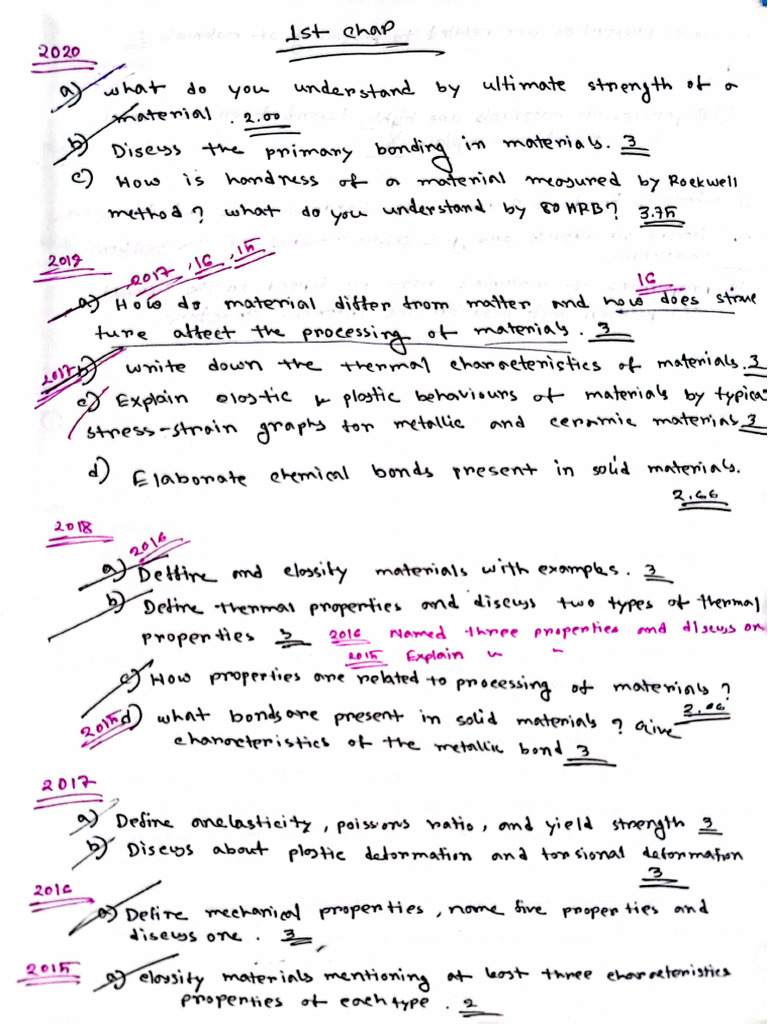 1st chap
2020
a) what do you understand by ultimate strength of a
material. 2.00
b) Discuss the primary bonding in materials. 3
c) How is hardness of a material measured by Rockwell
method? what do you understand by 80 HRB? 3.75
2019
2017, 16, 15
16
a) How do material differ from matter and how does struc
ture affect the processing of materials. 3
2017 b) write down the thermal characteristics of materials. 3
c) Explain elastic & plastic behaviours of materials by typical
stress-strain graphs for metallic and ceramic materials 3
d) Elaborate chemical bonds present in solid materials.
2.66
2018
2016
a) Define and classify materials with examples. 3
b) Define thermal properties and discuss two types of thermal
properties 3 2016 Named three properties and discuss on
2015 Explain " "
c) How properties are related to processing of materials?
2.66
2015 d) what bonds are present in solid materials? Give
characteristics of the metallic bond 3
2017
a) Define anelasticity, poissons ratio, and yield strength 3
b) Discuss about plastic deformation and torsional deformation
3
2016
a) Define mechanical properties, name five properties and
discuss one. 3
2015 a) classify materials mentioning at least three characteristics
properties of each type. 2